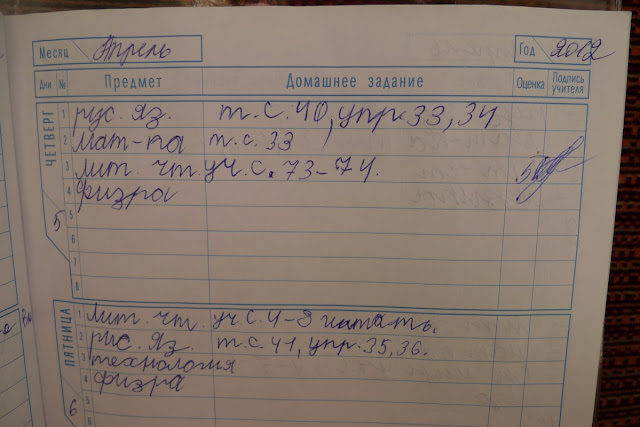 Месяц Апрель Год 2012
Дни № Предмет Домашнее задание Оценка Подпись учителя
ЧЕТВЕРГ
1 рус. яз. т.с.40, упр.33,34
2 мат-ка т.с.33
3 лит. чт. уч.с.73-74. 5
4 физра
5
5
6
7
8
ПЯТНИЦА
1 лит. чт. уч.с.4-8 читать.
2 рус. яз. т.с.41, упр.35,36.
3 технология
4 физра
5
6
6